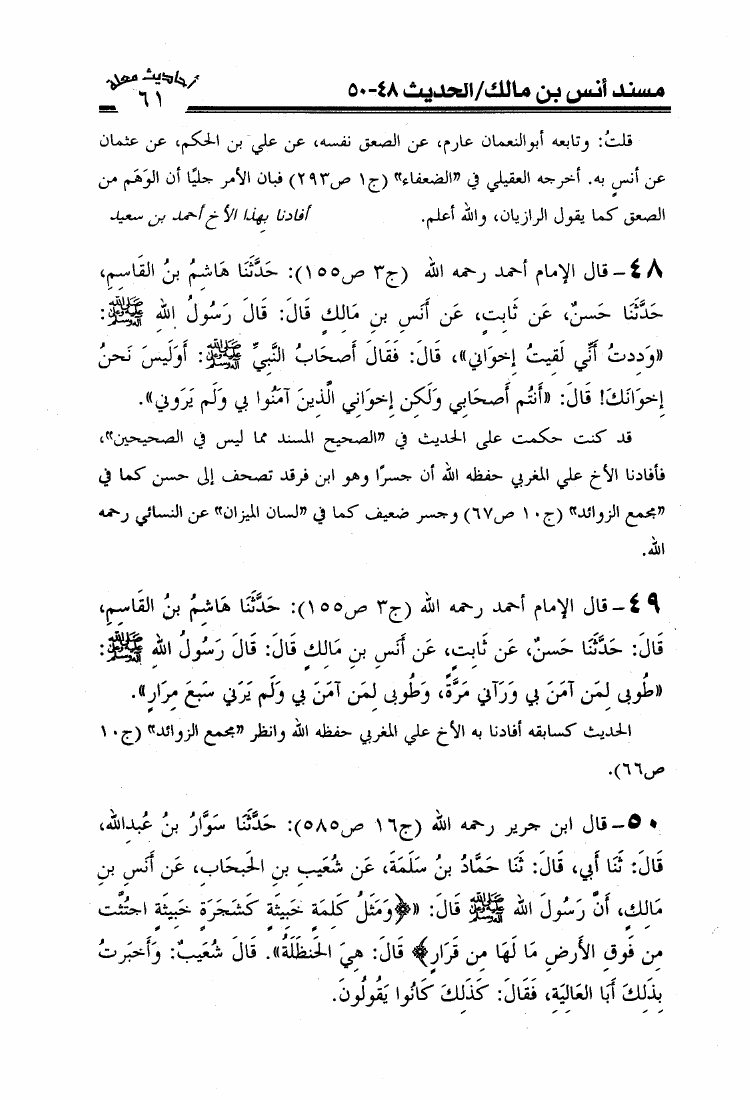 أحاديث معلة
٦١
مسند أنس بن مالك/الحديث ٤٨-٥٠
قلتُ: وتابعه أبوالنعمان عارم، عن الصعق نفسه، عن علي بن الحكم، عن عثمان
عن أنسٍ به. أخرجه العقيلي في «الضعفاء» (ج١ ص٢٩٣) فبان الأمر جليًا أن الوَهَم من
الصعق كما يقول الرازيان، والله أعلم. أفادنا بهذا الأخ أحمد بن سعيد
٤٨- قال الإمام أحمد رحمه الله (ج٣ ص١٥٥): حَدَّثَنَا هَاشِمُ بنُ القَاسِمِ،
حَدَّثَنَا حَسَنٌ، عَن ثَابِتٍ، عَن أَنَسِ بنِ مَالكٍ قَالَ: قَالَ رَسُولُ اللهِ ﷺ:
«وَدِدتُ أَنِّي لَقِيتُ إِخوَانِي»، قَالَ: فَقَالَ أَصحَابُ النَّبِيِّ ﷺ: أَوَلَيسَ نَحنُ
إِخوَانَكَ! قَالَ: «أَنتُم أَصحَابِي وَلَكِن إِخوَانِي الَّذِينَ آمَنُوا بِي وَلَم يَرَونِي».
قد كنت حكمت على الحديث في «الصحيح المسند مما ليس في الصحيحين»،
فأفادنا الأخ علي المغربي حفظه الله أن جسرًا وهو ابن فرقد تصحف إلى حسن كما في
«مجمع الزوائد» (ج١٠ ص٦٧) وجسر ضعيف كما في «لسان الميزان» عن النسائي رحمه
الله.
٤٩- قال الإمام أحمد رحمه الله (ج٣ ص١٥٥): حَدَّثَنَا هَاشِمُ بنُ القَاسِمِ،
قَالَ: حَدَّثَنَا حَسَنٌ، عَن ثَابِتٍ، عَن أَنَسِ بنِ مَالكٍ قَالَ: قَالَ رَسُولُ اللهِ ﷺ:
«طُوبَى لِمَن آمَنَ بِي وَرَآنِي مَرَّةً، وَطُوبَى لِمَن آمَنَ بِي وَلَم يَرَنِي سَبعَ مِرَارٍ».
الحديث كسابقه أفادنا به الأخ علي المغربي حفظه الله وانظر «مجمع الزوائد» (ج١٠
ص٦٦).
٥٠- قال ابن جرير رحمه الله (ج١٦ ص٥٨٥): حَدَّثَنَا سَوَّارُ بنُ عُبدِالله،
قَالَ: ثَنَا أَبِي، قَالَ: ثَنَا حَمَّادُ بنُ سَلَمَةَ، عَن شُعَيبِ بنِ الحَبحَابِ، عَن أَنَسِ بنِ
مَالِكٍ، أَنَّ رَسُولَ اللهِ ﷺ قَالَ: «﴿وَمَثَلُ كَلِمَةٍ خَبِيثَةٍ كَشَجَرَةٍ خَبِيثَةٍ اجتُثَّت
مِن فَوقِ الأَرضِ مَا لَهَا مِن قَرَارٍ﴾ قَالَ: هِيَ الحَنظَلَةُ». قَالَ شُعَيبٌ: وَأَخبَرتُ
بِذَلِكَ أَبَا العَالِيَةِ، فَقَالَ: كَذَلِكَ كَانُوا يَقُولُونَ.